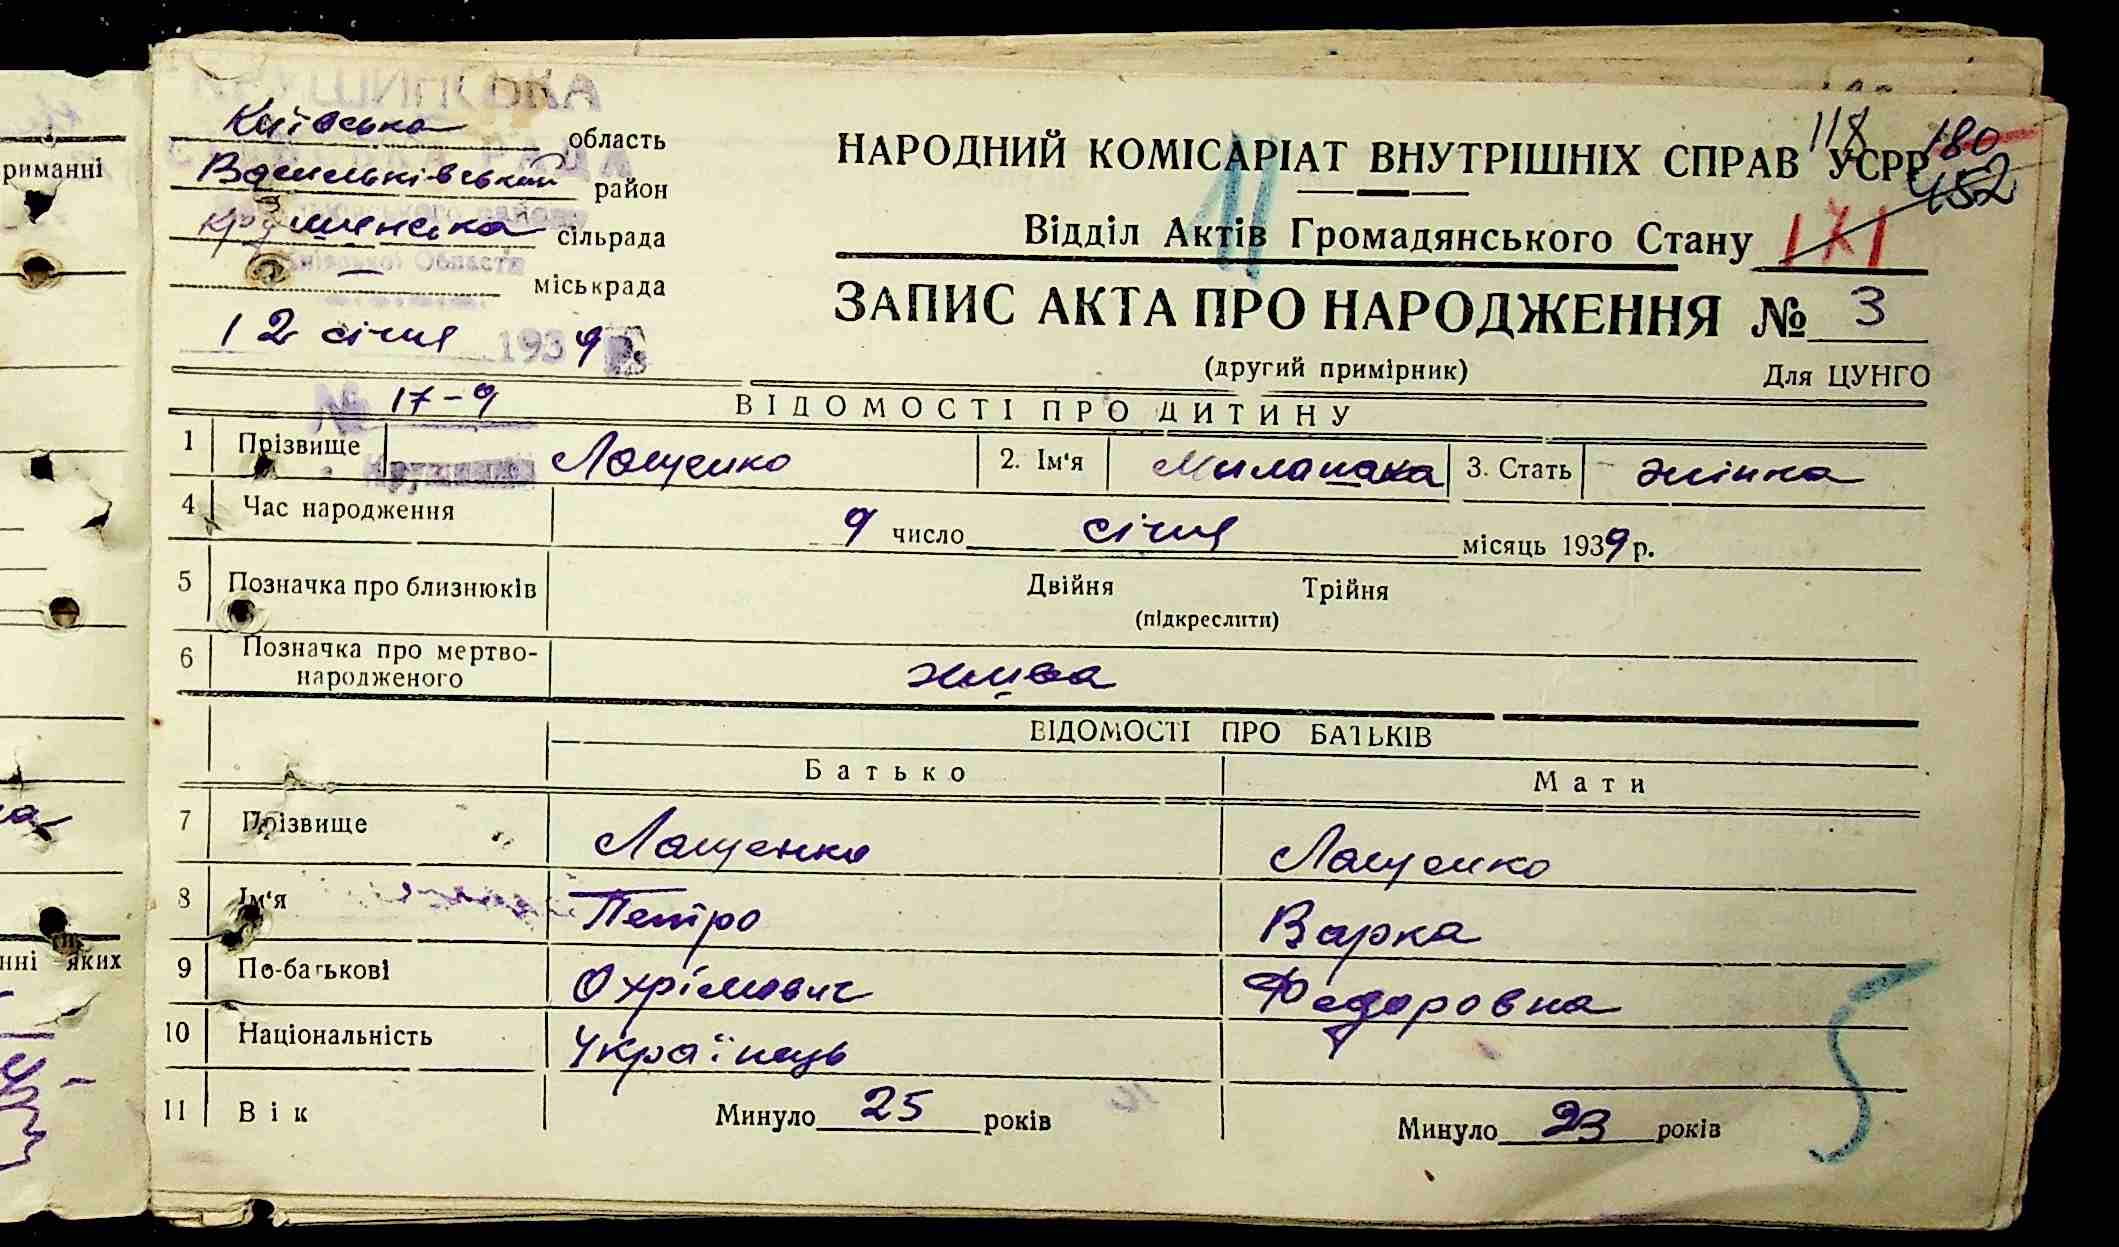 Київська область
Васильківський район
Крушинська сільрада
— міськрада
12 січня 1939 р.
№ 17-9
НАРОДНИЙ КОМІСАРІАТ ВНУТРІШНІХ СПРАВ УСРР
118 180
152
Відділ Актів Громадянського Стану 171
11
ЗАПИС АКТА ПРО НАРОДЖЕННЯ № 3
(другий примірник) Для ЦУНГО
ВІДОМОСТІ ПРО ДИТИНУ
1 Прізвище Лащенко 2. Ім'я 3. Стать жінка
4 Час народження 9 число січня місяць 1939 р.
5 Позначка про близнюків Двійня Трійня
(підкреслити)
6 Позначка про мертво-
народженого жива
ВІДОМОСТІ ПРО БАТЬКІВ
Батько Мати
7 Прізвище Лащенко Лащенко
8 Ім'я Петро Варка
9 По-батькові Охрімович Федоровна
10 Національність Українець
11 Вік Минуло 25 років Минуло 23 років
5
риманні
нні яких